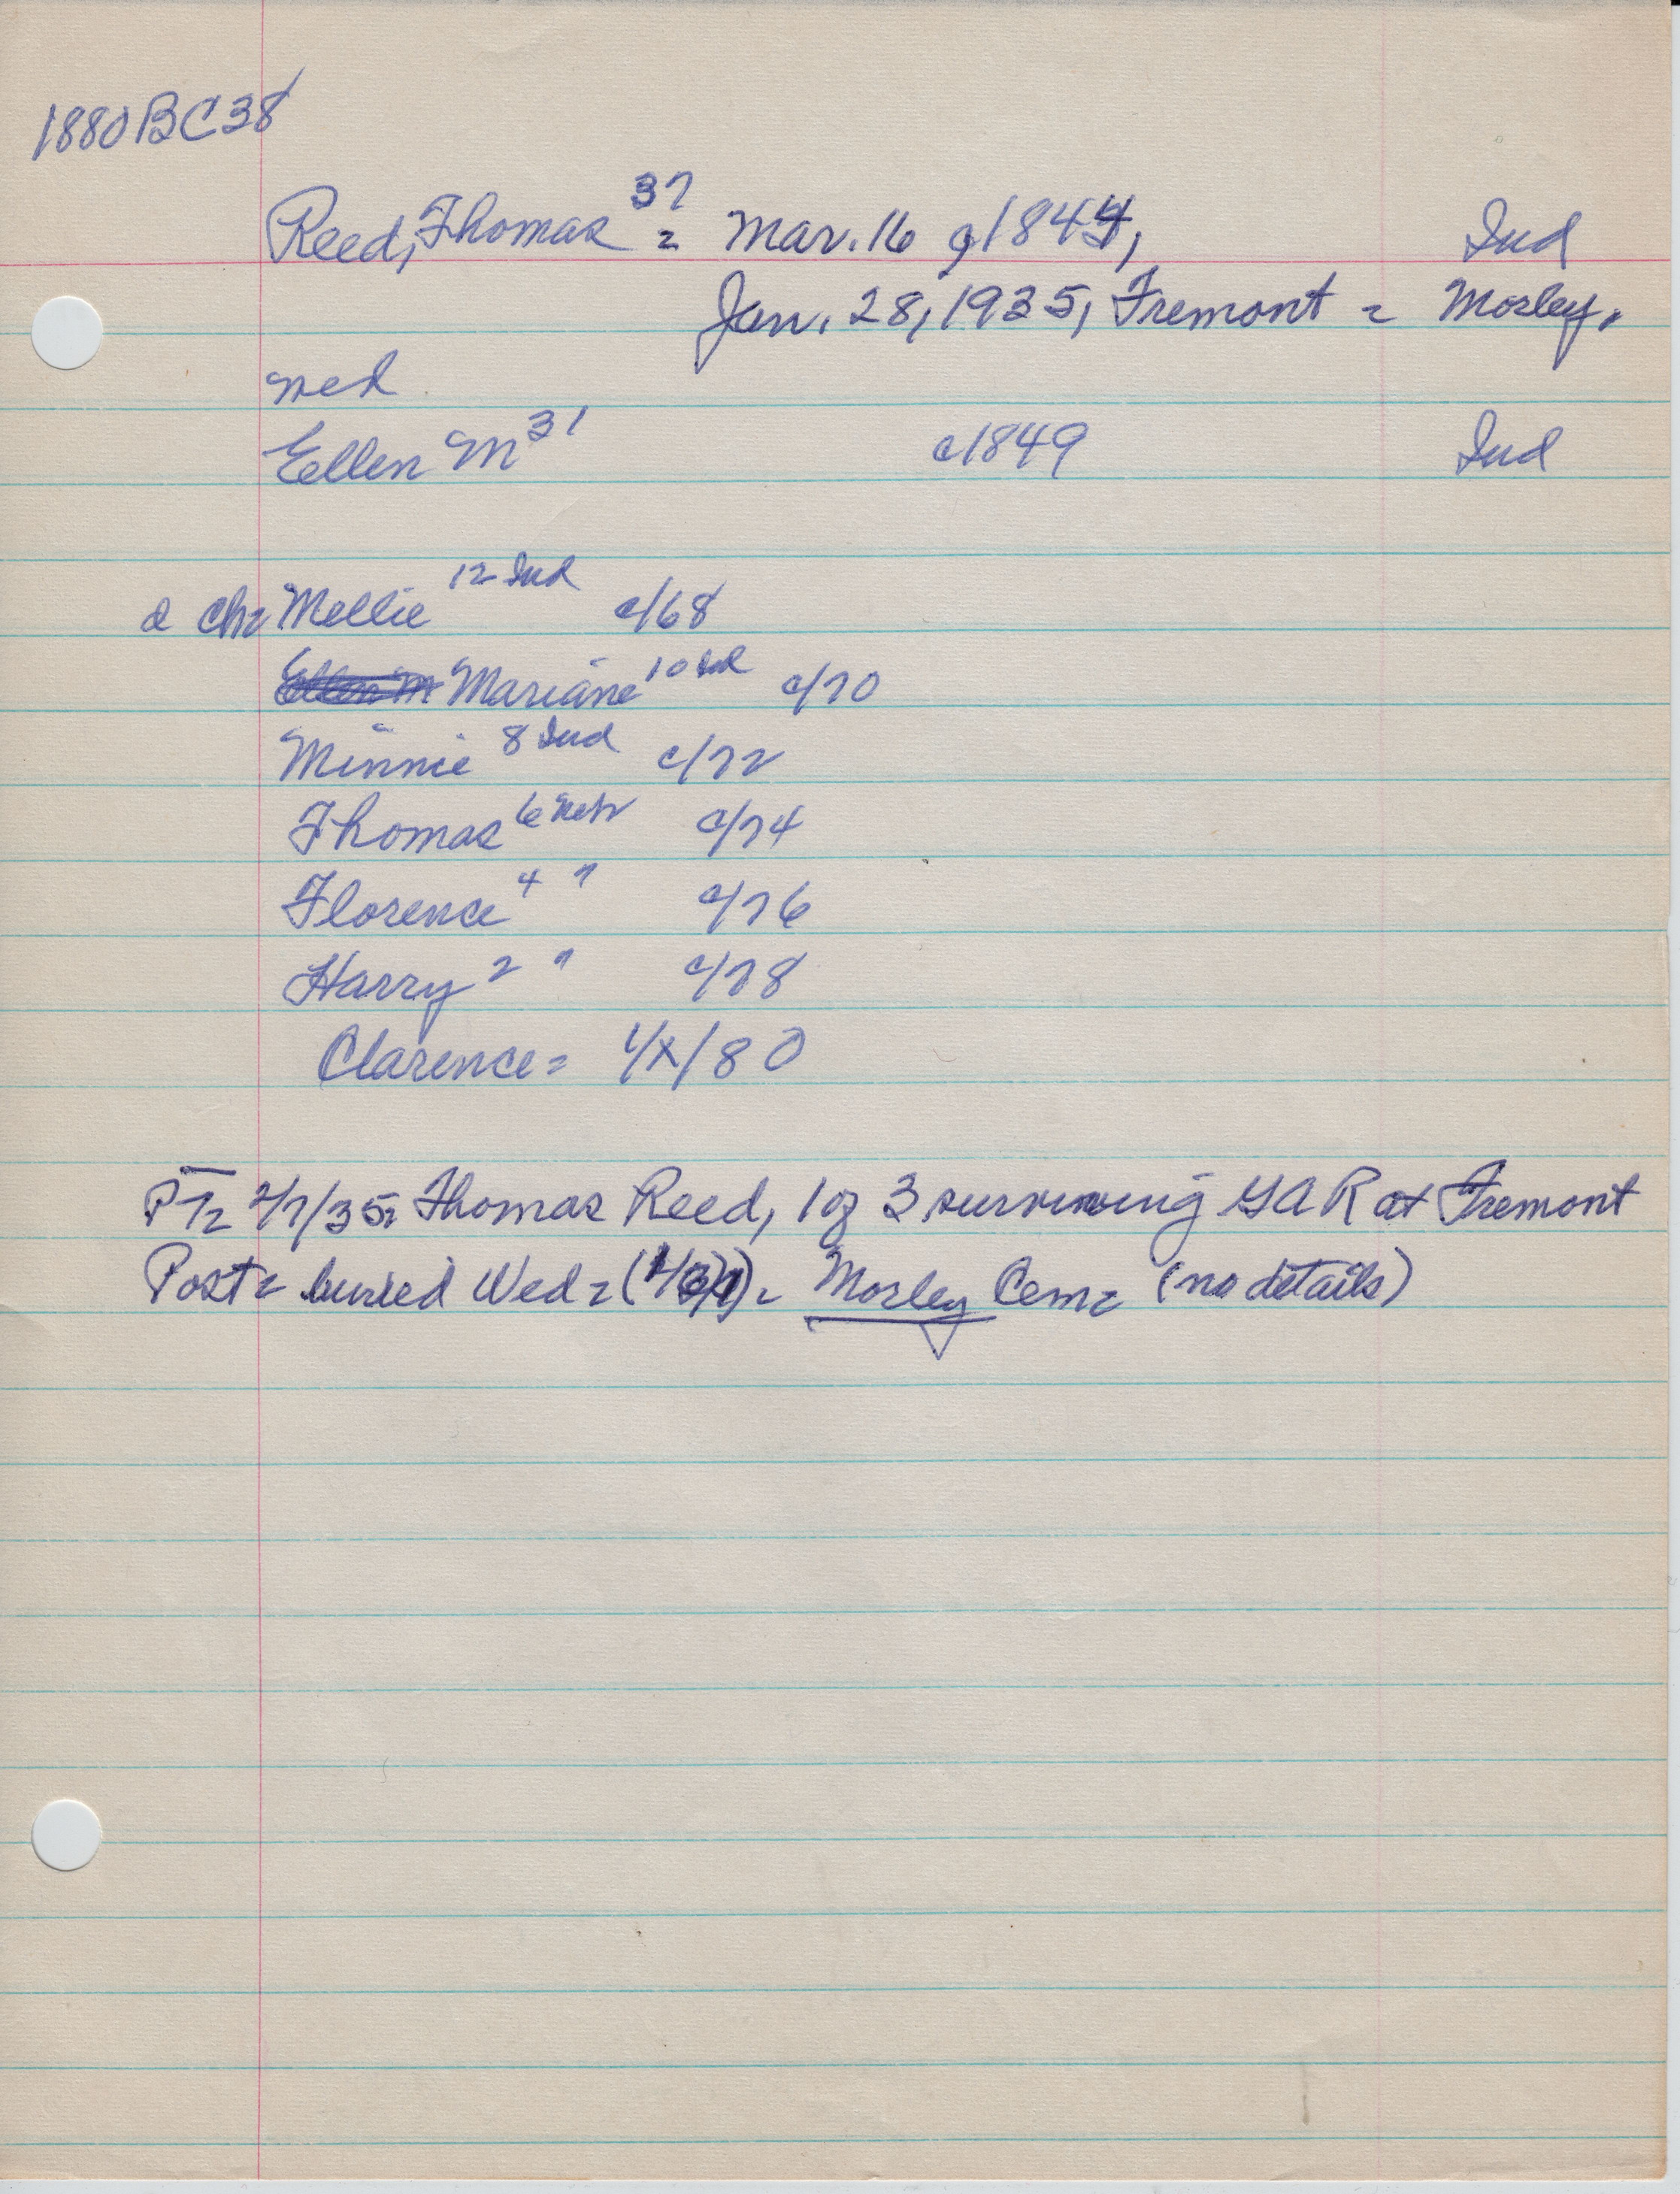 1880 BC 38
Reed, Thomas 37 = Mar. 16, 1844, Ind
Jan. 28, 1935, Fremont = Mosley.
med
Ellen M 31 c1849 Ind
2 ch= Mellie 12 Ind c/68
Ellen M Mariane 10 Ind c/70
Minnie 8 Ind c/72
Thomas 6 Neb c/74
Florence 4 " c/76
Harry 2 " c/78
Clarence = 1/x/80
PT= 2/7/35= Thomas Reed, 1 of 3 surviving GAR at Fremont
Post= buried Wed= Mosley Cem= (no details)